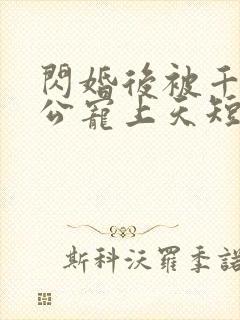 閃婚後被千
公寵上天短
斯科沃羅季諾